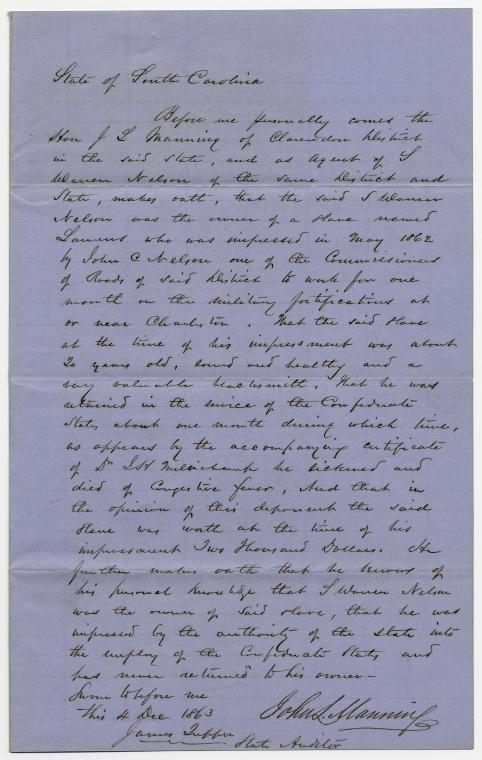 State of South Carolina
Before me personally comes the
Hon J L Manning of Clarendon District
in the said State, and as Agent of S
Warren Nelson of the same District and
State, makes oath, that the said S Warren
Nelson was the owner of a slave named
Lawrens who was impressed in May 1862
by John C Nelson one of the Commissioners
of Roads of said District to work for one
month on the military fortifications at
or near Charleston. That the said slave
at the time of his impressment was about
20 years old, sound and healthy and a
very valuable blacksmith. That he was
retained in the service of the Confederate
States about one month during which time,
as appears by the accompanying certificate
of Dr he sickened and
died of Congestive fever, And that in
the opinion of this deponent the said
slave was worth at the time of his
impressment Two Thousand Dollars. He
further makes oath that he knows of
his personal knowledge that S Warren Nelson
was the owner of said slave, that he was
impressed by the authority of the State into
the employ of the Confederate States and
has never returned to his owner -
Sworn to before me
this 4 Dec 1863 John L. Manning
James Tupper
State Auditor